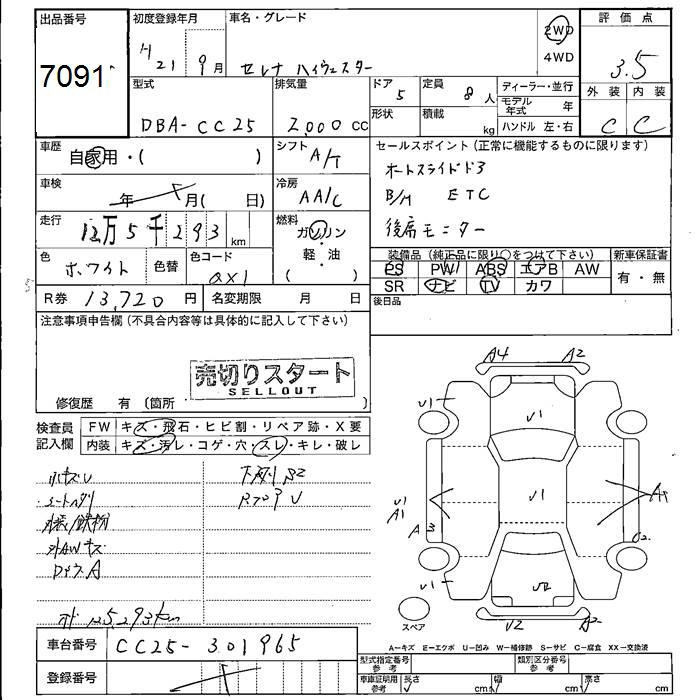 出品番号 初度登録年月 車名・グレード 評価点
7091 H21 9月 セレナ ハイウェスター 2WD 4WD 3.5
外装 内装
C C
型式 排気量 ドア 定員 ディーラー・並行
DBA-CC25 2,000cc 5 8人 モデル年式 年
形状 積載 kg ハンドル 左・右
車歴 自家用・( ) シフト A/T セールスポイント(正常に機能するものに限ります)
オートスライドドア
車検 年 月( 日) 冷房 AA/C B/M ETC
後席モニター
走行 12万5千293km 燃料 ガソリン・軽・油 ( )
色 ホワイト 色替 色コード QX1
装備品(純正品に限り○をつけて下さい) 新車保証書
PS PW ABS エアB AW 有・無
SR ナビ TV カワ
R券 13,720円 名変期限 月 日 後日品
注意事項申告欄(不具合内容等は具体的に記入して下さい)
売切りスタート
SELLOUT
修復歴 有(箇所 )
検査員記入欄 FW キズ・飛石・ヒビ割・リペア跡・X要
内装 キズ・汚レ・コゲ・穴・スレ・キレ・破レ
A4 A2
U1 U1
U1
U1 A1
A3
U1 U2
U2 A2
スペア
外AWキズ
125,293km
A-キズ E-エクボ U-凹み W-補修跡 S-サビ C-腐食 XX-交換済
車台番号 CC25-301965
型式指定番号 参考 類別区分番号 参考
登録番号 車庫証明用 参考 長さ cm 幅 cm 高さ cm